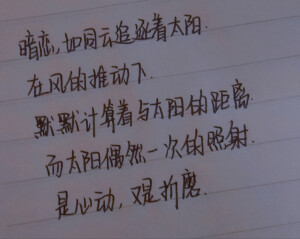 暗恋,如同云追逐着太阳.
在风的推动下.
默默计算着与太阳的距离.
而太阳偶然一次的照射.
是心动,又是折磨.